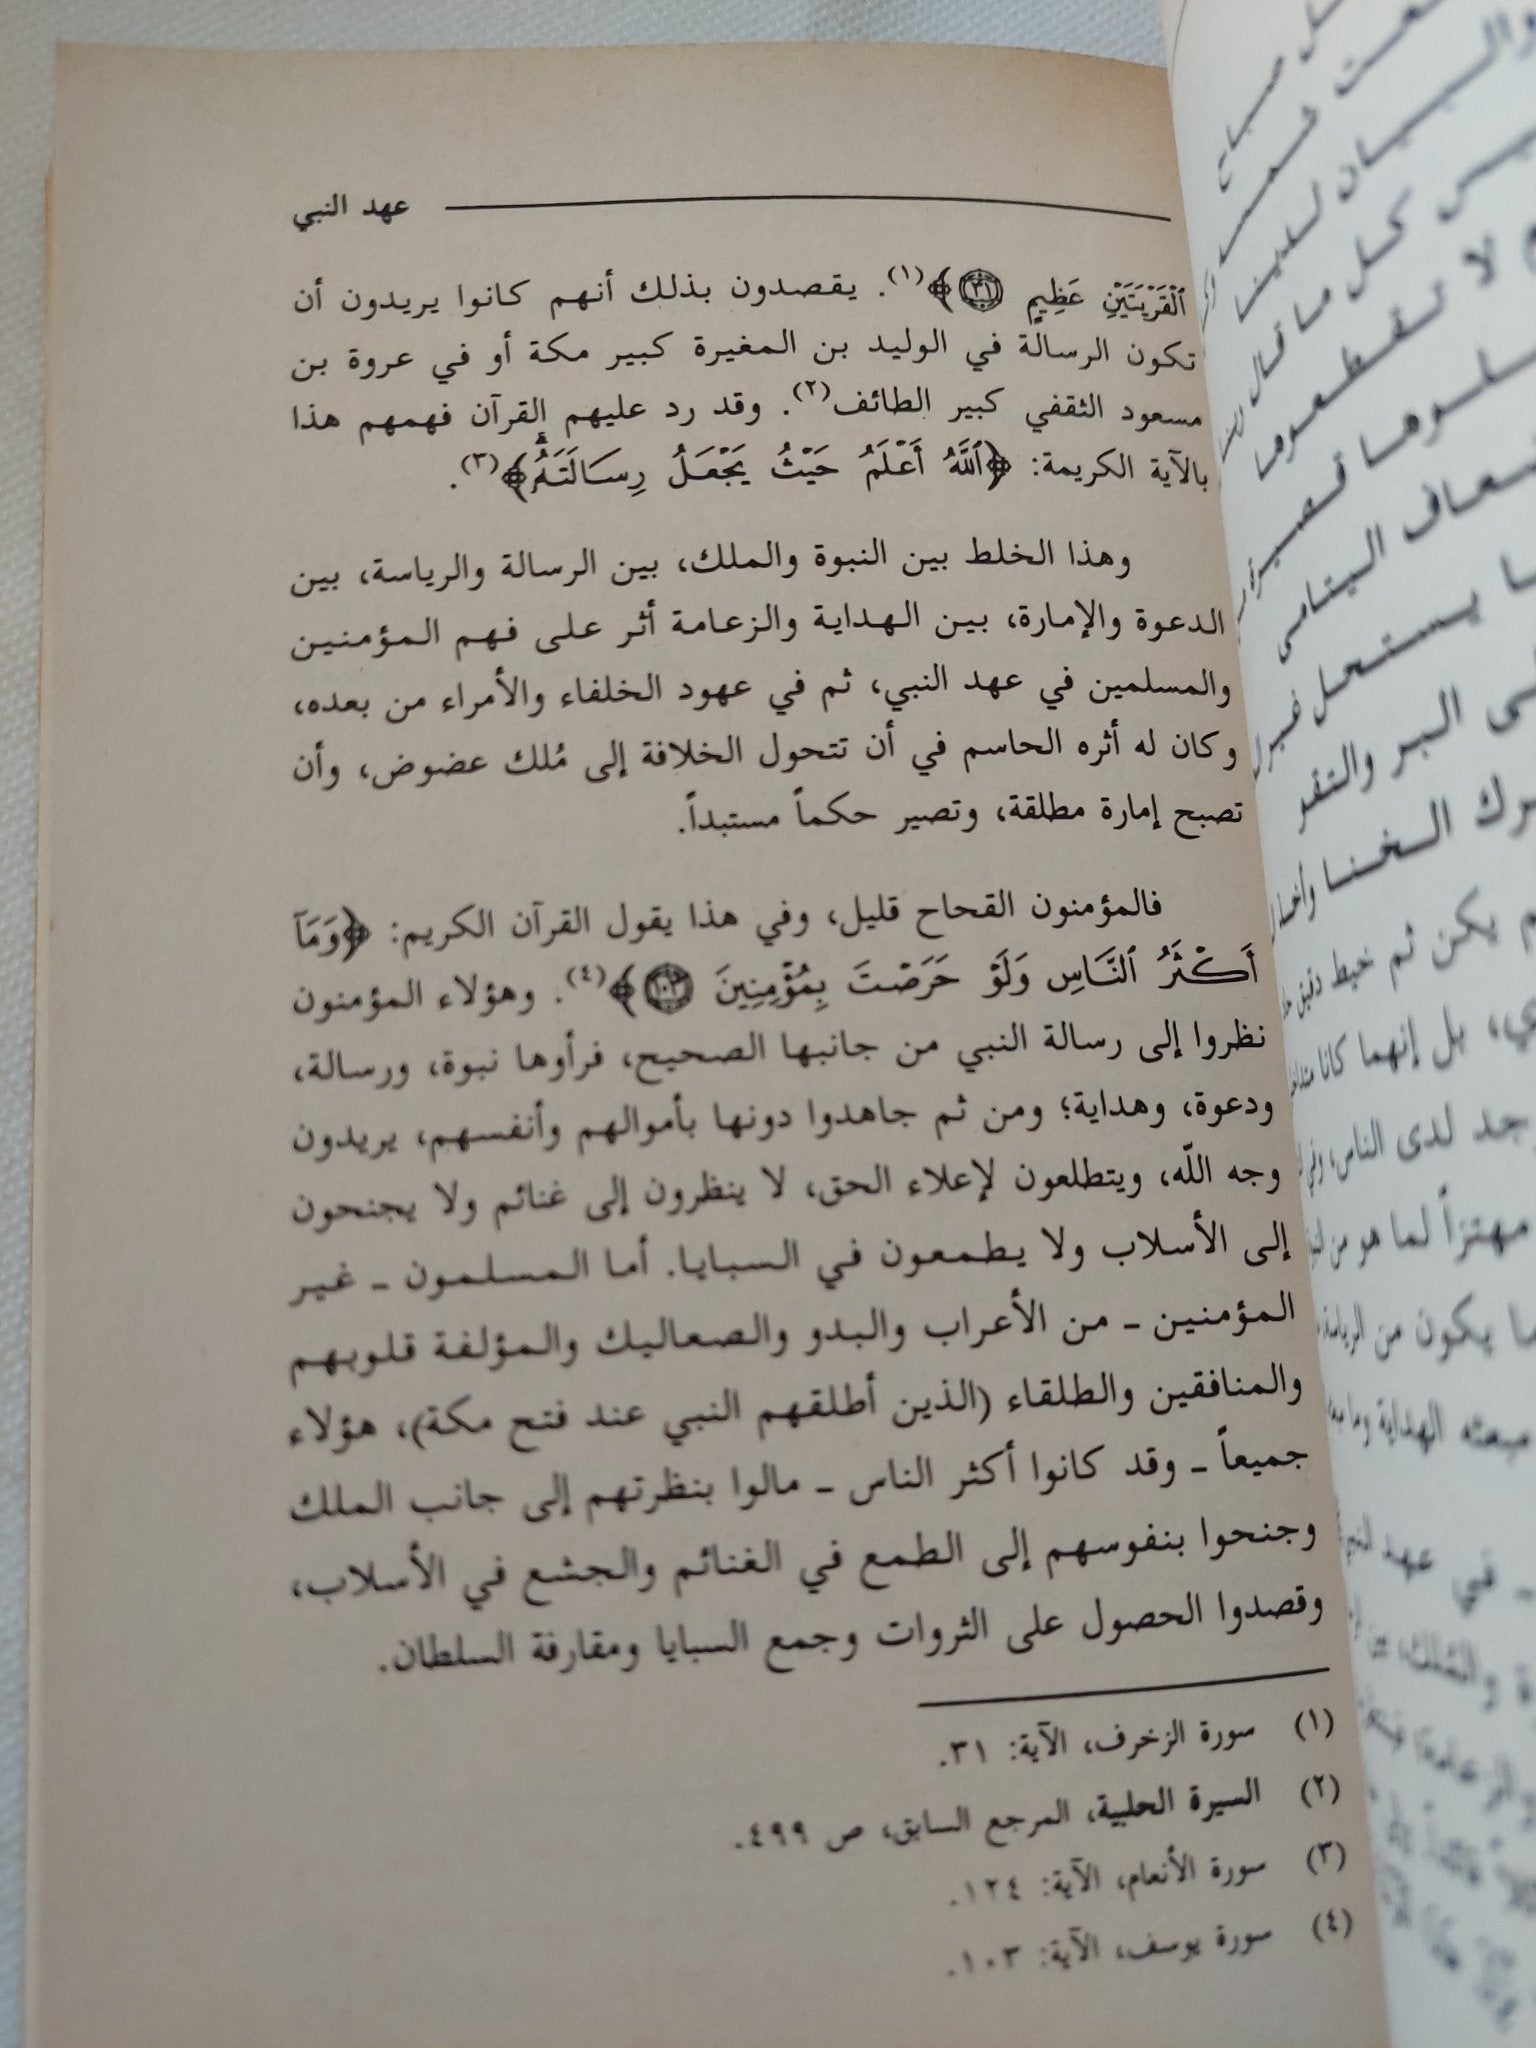 عهد النبي
ٱلْقَرْيَتَيْنِ عَظِيمٍ ٣١﴾(١). يقصدون بذلك أنهم كانوا يريدون أن
تكون الرسالة في الوليد بن المغيرة كبير مكة أو في عروة بن
مسعود الثقفي كبير الطائف(٢). وقد رد عليهم القرآن فهمهم هذا
بالآية الكريمة: ﴿ٱللَّهُ أَعْلَمُ حَيْثُ يَجْعَلُ رِسَالَتَهُۥ﴾(٣).
وهذا الخلط بين النبوة والملك، بين الرسالة والرياسة، بين
الدعوة والإمارة، بين الهداية والزعامة أثر على فهم المؤمنين
والمسلمين في عهد النبي، ثم في عهود الخلفاء والأمراء من بعده،
وكان له أثره الحاسم في أن تتحول الخلافة إلى مُلك عضوض، وأن
تصبح إمارة مطلقة، وتصير حكماً مستبداً.
فالمؤمنون القحاح قليل، وفي هذا يقول القرآن الكريم: ﴿وَمَآ
أَكْثَرُ ٱلنَّاسِ وَلَوْ حَرَصْتَ بِمُؤْمِنِينَ ١٠٣﴾(٤). وهؤلاء المؤمنون
نظروا إلى رسالة النبي من جانبها الصحيح، فرأوها نبوة، ورسالة،
ودعوة، وهداية؛ ومن ثم جاهدوا دونها بأموالهم وأنفسهم، يريدون
وجه اللّه، ويتطلعون لإعلاء الحق، لا ينظرون إلى غنائم ولا يجنحون
إلى الأسلاب ولا يطمعون في السبايا. أما المسلمون ـ غير
المؤمنين ـ من الأعراب والبدو والصعاليك والمؤلفة قلوبهم
والمنافقين والطلقاء (الذين أطلقهم النبي عند فتح مكة)، هؤلاء
جميعاً ـ وقد كانوا أكثر الناس ـ مالوا بنظرتهم إلى جانب الملك
وجنحوا بنفوسهم إلى الطمع في الغنائم والجشع في الأسلاب،
وقصدوا الحصول على الثروات وجمع السبايا ومقارفة السلطان.
(١) سورة الزخرف، الآية: ٣١.
(٢) السيرة الحلبية، المرجع السابق، ص ٤٩٩.
(٣) سورة الأنعام، الآية: ١٢٤.
(٤) سورة يوسف، الآية: ١٠٣.
صباح
والبيان لدينا
كل ما قال
لا تقطعوها
قصيرة
اليتامى
يستحل غير
البر والتقر
يكن ثم خيط دقيق
بل إنهما كانا
لدى الناس،
مهتزاً لما هو من
يكون من الرياسة
مبعثه الهداية وما
ـ في عهد النبي